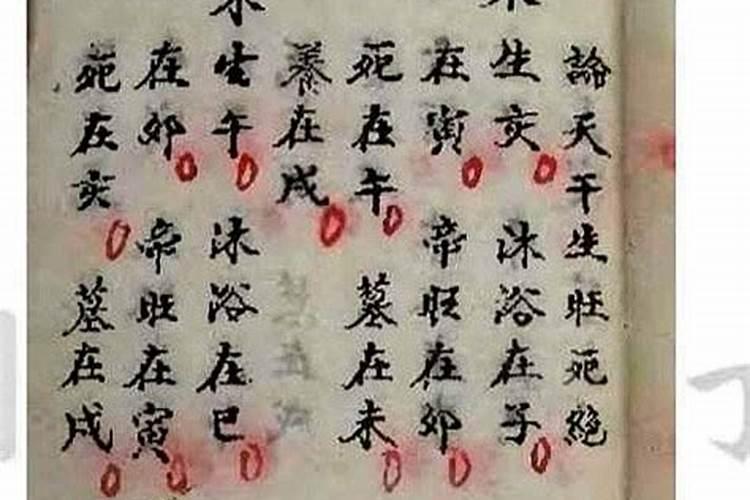 論天干生旺死絕
木生亥 沐浴在子
在寅 帝旺在卯
死在午 墓在未
養在戌
木生午 沐浴在巳
在卯 帝旺在寅
死在亥 墓在戌